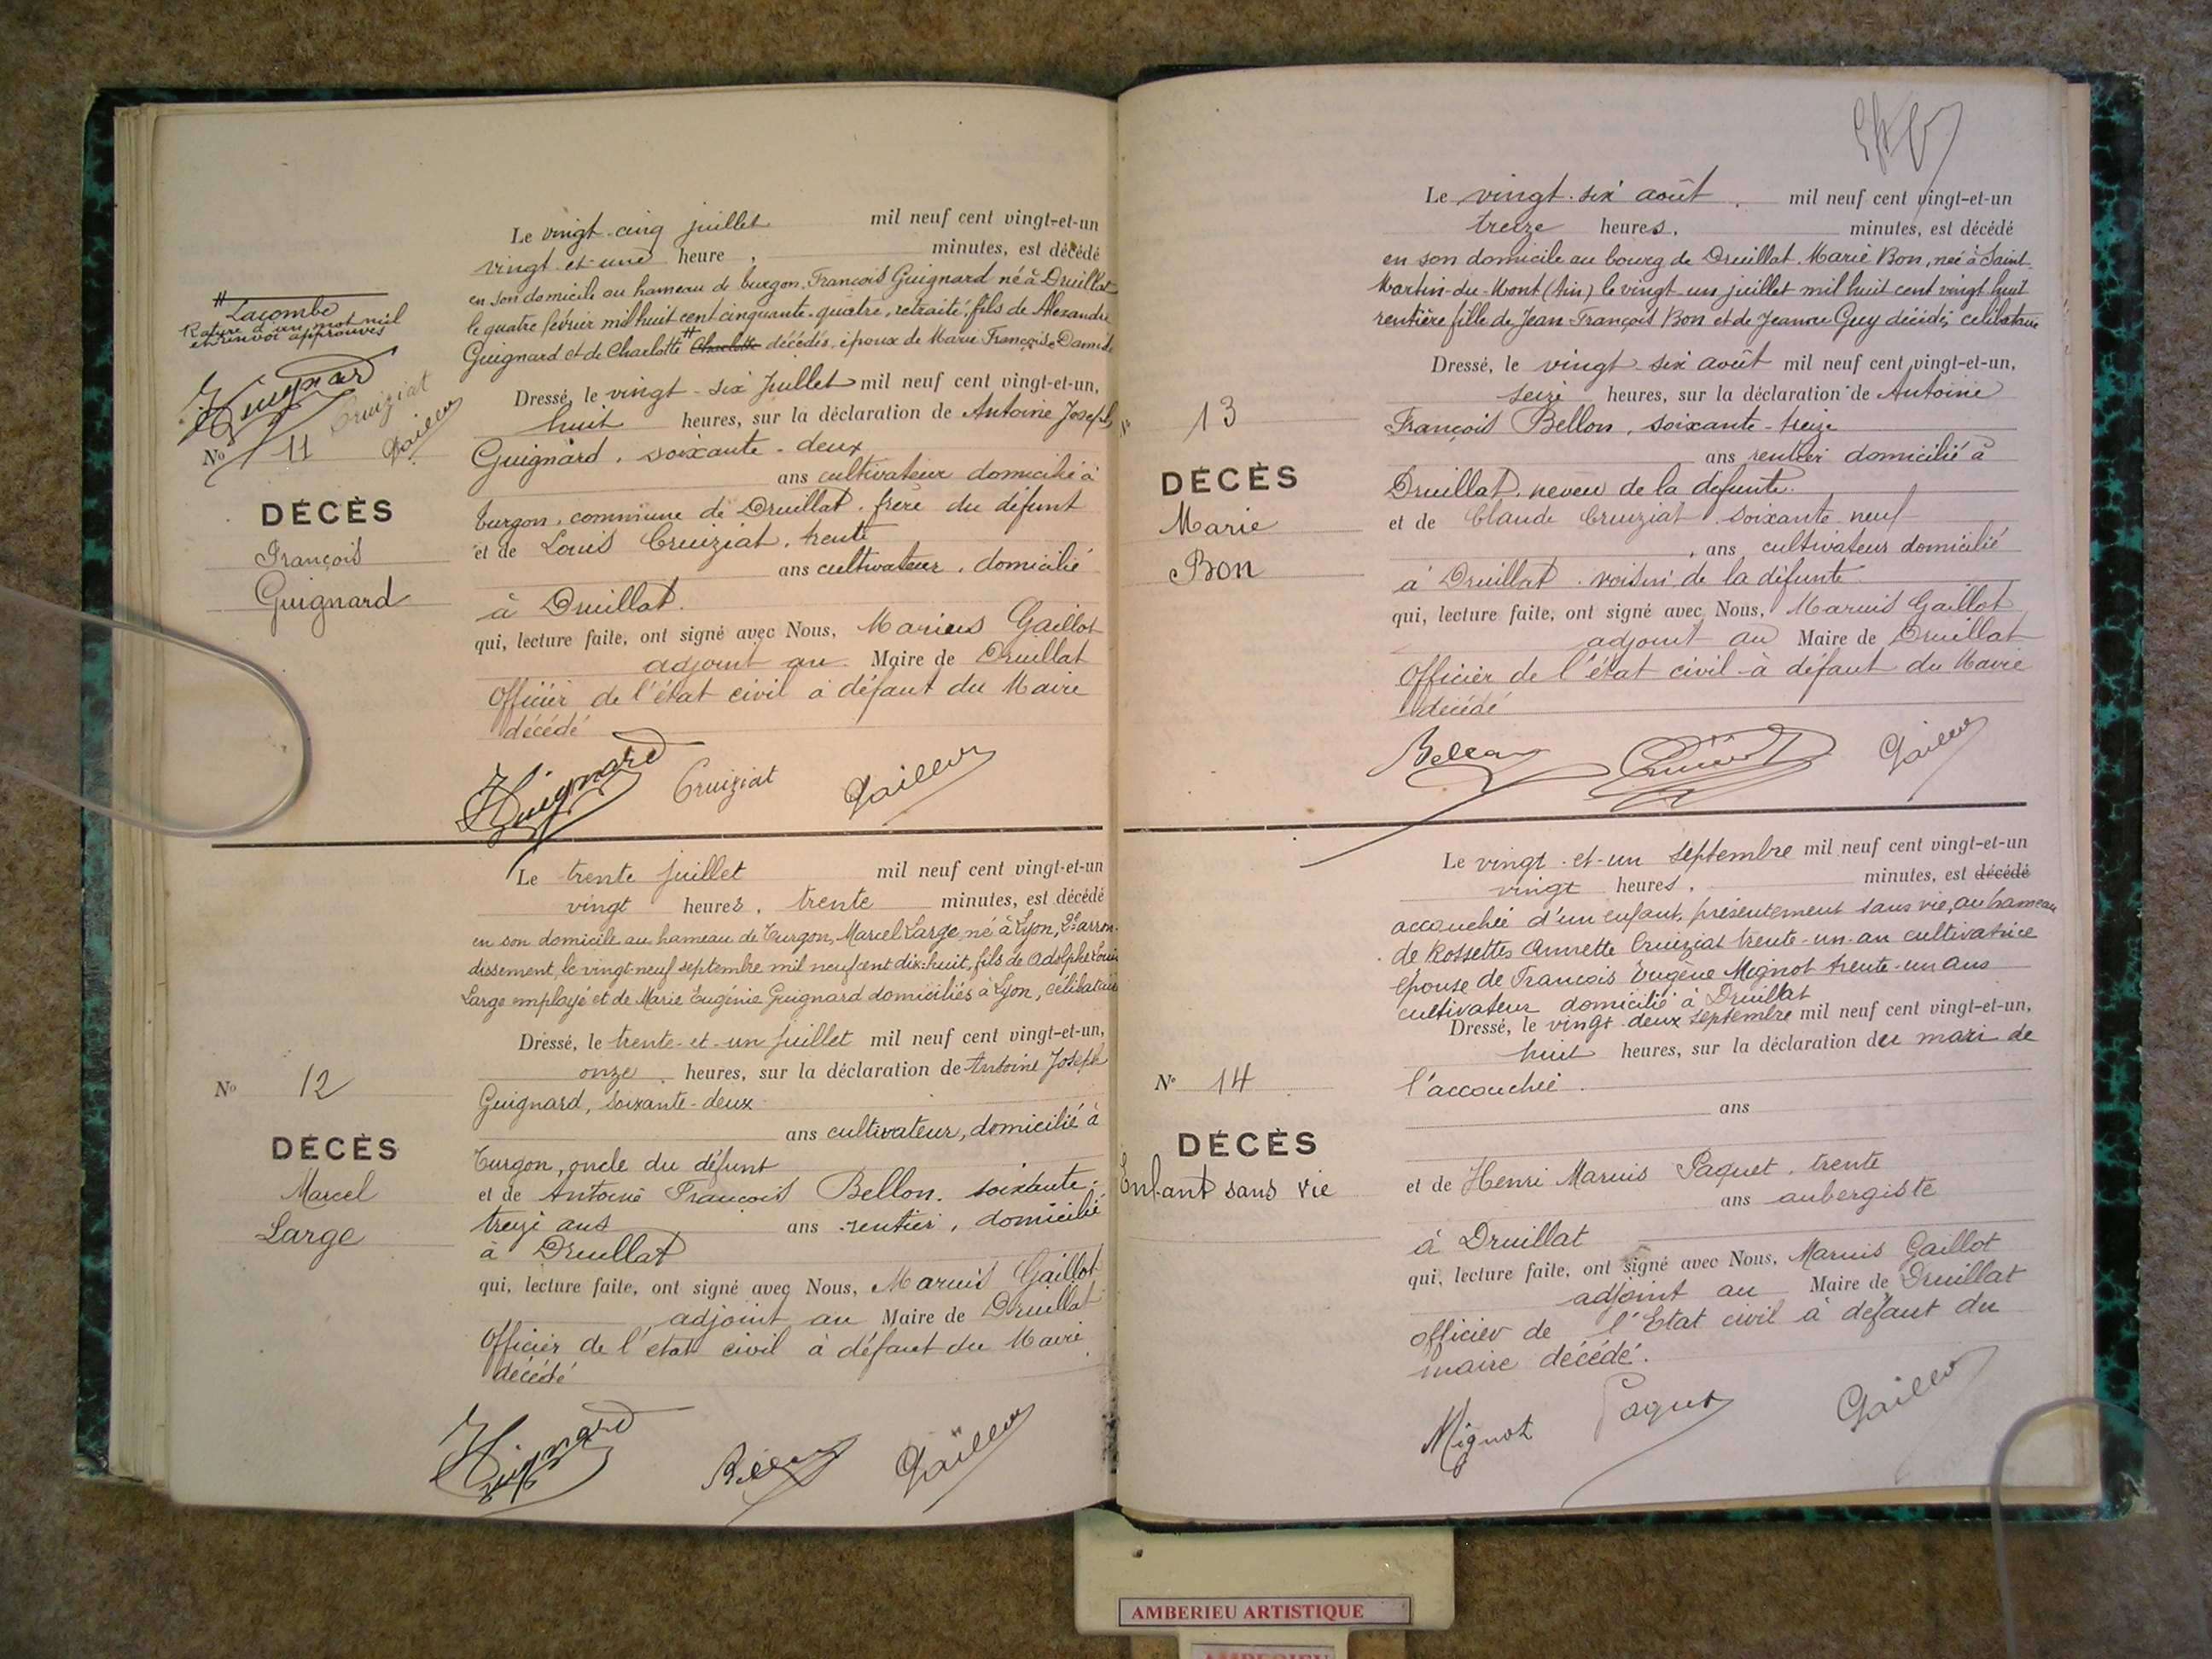 # Lacombe
Rature d'un mot nul
et renvoi approuvés
Guignard
Cruiziat
Gaillot
No 11
DÉCÈS
François
Guignard
Le vingt-cinq juillet mil neuf cent vingt-et-un
vingt et une heure, minutes, est décédé
en son domicile au hameau de Turgon, François Guignard né à Druillat
le quatre février mil huit cent cinquante-quatre, retraité, fils de Alexandre
Guignard et de Charlotte # Charlotte décédés, époux de Marie Françoise
Dressé, le vingt-six Juillet mil neuf cent vingt-et-un,
huit heures, sur la déclaration de Antoine Joseph
Guignard, soixante-deux
ans cultivateur domicilié à
Turgon, commune de Druillat, frère du défunt
et de Louis Cruiziat, trente
ans cultivateur, domicilié
à Druillat.
qui, lecture faite, ont signé avec Nous, Marius Gaillot
adjoint au Maire de Druillat
Officier de l'état civil à défaut du Maire
décédé
Guignard Cruiziat Gaillot
No 12
DÉCÈS
Marcel
Large
Le trente juillet mil neuf cent vingt-et-un
vingt heures, trente minutes, est décédé
en son domicile au hameau de Turgon, Marcel Large, né à Lyon, 2e arron-
dissement, le vingt-neuf septembre mil neuf cent dix-huit, fils de Adolphe Louis
Large employé et de Marie Eugénie Guignard domiciliés à Lyon, célibataire
Dressé, le trente-et-un juillet mil neuf cent vingt-et-un,
onze heures, sur la déclaration de Antoine Joseph
Guignard, soixante-deux
ans cultivateur, domicilié à
Turgon, oncle du défunt
et de Antoine François Bellon, soixante-
treize ans ans rentier, domicilié
à Druillat
qui, lecture faite, ont signé avec Nous, Marius Gaillot
adjoint au Maire de Druillat
Officier de l'état civil à défaut du Maire
décédé
Guignard Bellon Gaillot
No 13
DÉCÈS
Marie
Bon
Le vingt-six août mil neuf cent vingt-et-un
treize heures, minutes, est décédé
en son domicile au bourg de Druillat, Marie Bon, née à Saint-
Martin-du-Mont (Ain) le vingt-un juillet mil huit cent vingt huit
rentière fille de Jean-François Bon et de Jeanne Guy décédés, célibataire
Dressé, le vingt-six août mil neuf cent vingt-et-un,
seize heures, sur la déclaration de Antoine
François Bellon, soixante-treize
ans rentier domicilié à
Druillat, neveu de la défunte.
et de Claude Cruiziat, soixante-neuf
, ans cultivateur domicilié
à Druillat, voisin de la défunte.
qui, lecture faite, ont signé avec Nous, Marius Gaillot
adjoint au Maire de Druillat
Officier de l'état civil à défaut du Maire
décédé
Bellon Cruiziat Gaillot
No 14
DÉCÈS
Enfant sans vie
Le vingt-et-un septembre mil neuf cent vingt-et-un
vingt heures, minutes, est décédé
accouchée d'un enfant, présentement sans vie, au hameau
de Rossettes Annette Cruiziat trente-un-an cultivatrice
épouse de François Eugène Mignot trente-un ans
cultivateur domicilié à Druillat
Dressé, le vingt-deux septembre mil neuf cent vingt-et-un,
huit heures, sur la déclaration du mari de
l'accouchée.
ans
et de Henri Marius Paquet, trente
ans aubergiste
à Druillat
qui, lecture faite, ont signé avec Nous, Marius Gaillot
adjoint au Maire de Druillat
officier de l'Etat civil à défaut du
maire décédé.
Mignot Paquet Gaillot
AMBERIEU ARTISTIQUE
AMBERIEU